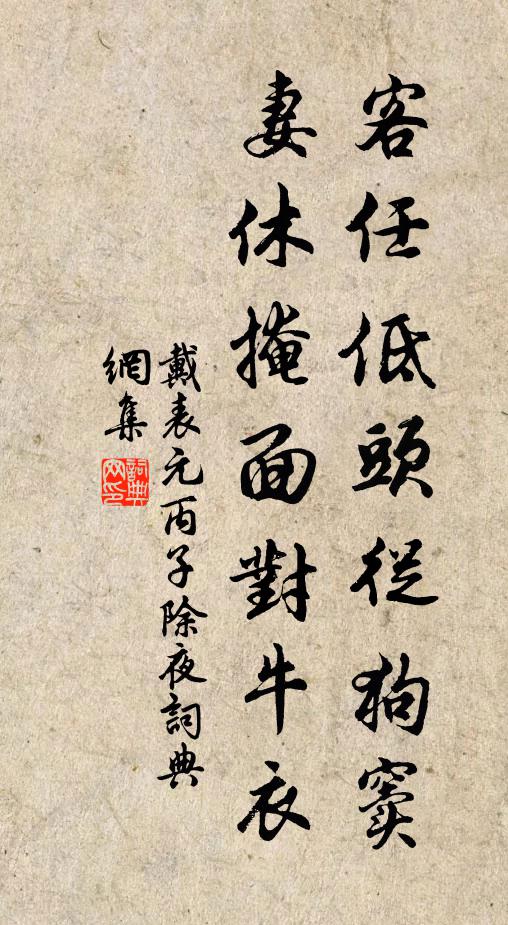 客任低頭從狗竇
妻休掩面對牛衣
戴表元丙子除夜詞典
網集
詞典
网印